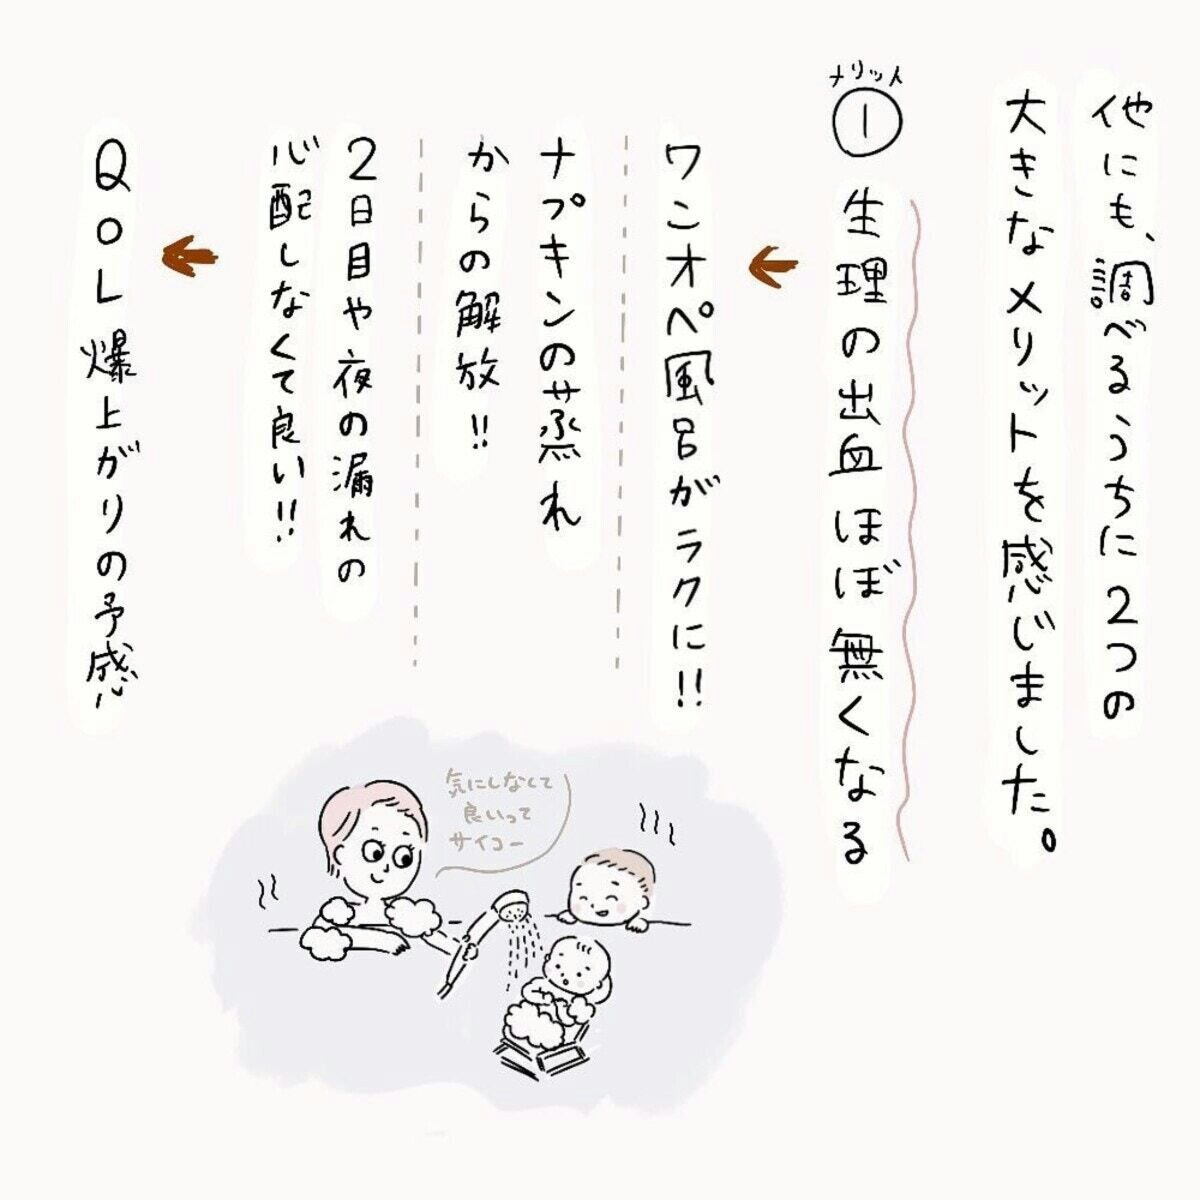 他にも、調べるうちに2つの
大きなメリットを感じました。
メリット
①生理の出血ほぼ無くなる
ワンオペ風呂がラクに!!
ナプキンの蒸れ
からの解放!!
2日目や夜の漏れの
心配しなくて良い!!
QOL爆上がりの予感
気にしなくて
良いって
サイコー